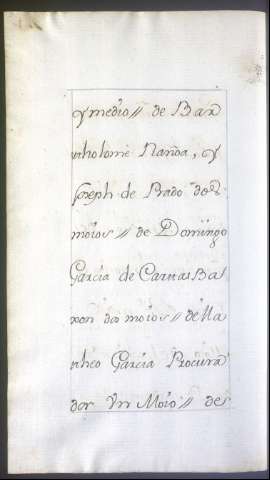 y medio // de Bar
tholome Nanoa, y
Joseph de Prado dos
moios // de Domingo
Garcia de Carras Bal
xon dos moios // de Ma
theo Garcia Procura
dor Un Moio // de